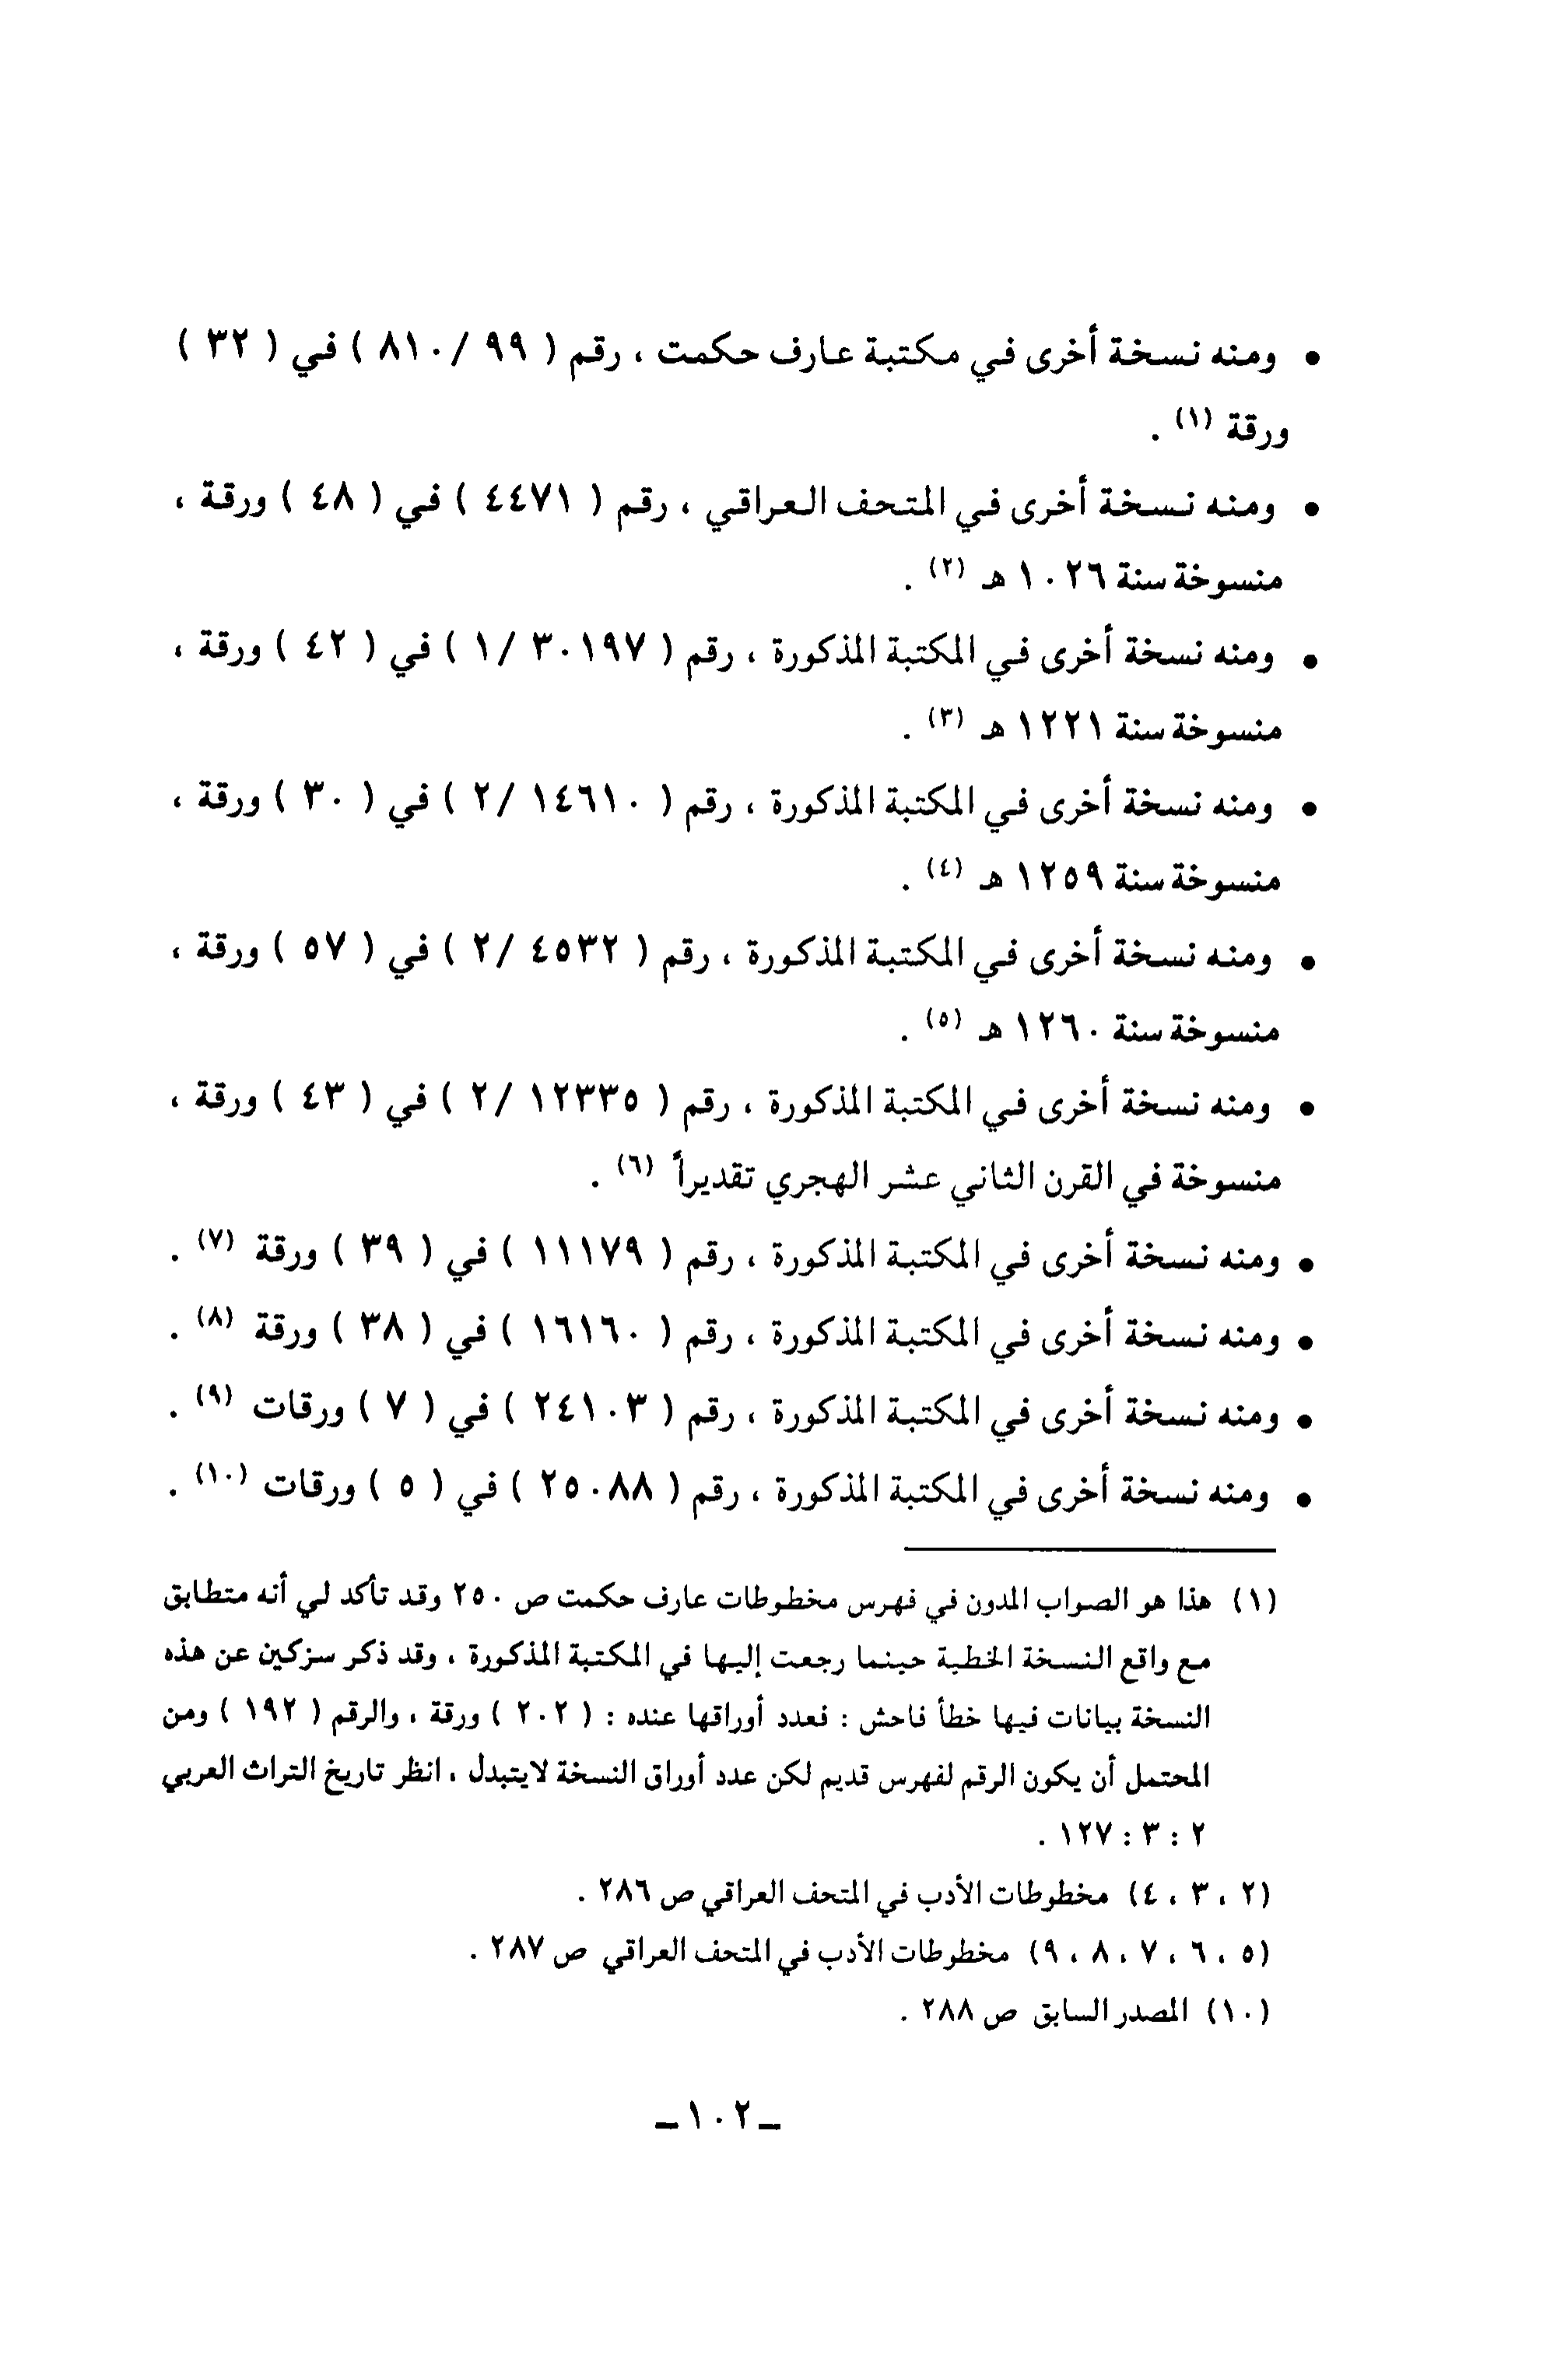 • ومنه نسخة أخرى في مكتبة عارف حكمت ، رقم ( ٩٩ / ٨١٠ ) في ( ٣٢ )
ورقة (١) .
• ومنه نسخة أخرى في المتحف العراقي ، رقم ( ٤٤٧١ ) في ( ٤٨ ) ورقة ،
منسوخة سنة ١٠٢٦ هـ (٢) .
• ومنه نسخة أخرى في المكتبة المذكورة ، رقم ( ٣٠١٩٧ / ١ ) في ( ٤٢ ) ورقة ،
منسوخة سنة ١٢٢١ هـ (٣) .
• ومنه نسخة أخرى في المكتبة المذكورة ، رقم ( ١٤٦١٠ / ٢ ) في ( ٣٠ ) ورقة ،
منسوخة سنة ١٢٥٩ هـ (٤) .
• ومنه نسخة أخرى في المكتبة المذكورة ، رقم ( ٤٥٣٢ / ٢ ) في ( ٥٧ ) ورقة ،
منسوخة سنة ١٢٦٠ هـ (٥) .
• ومنه نسخة أخرى في المكتبة المذكورة ، رقم ( ١٢٣٣٥ / ٢ ) في ( ٤٣ ) ورقة ،
منسوخة في القرن الثاني عشر الهجري تقديراً (٦) .
• ومنه نسخة أخرى في المكتبة المذكورة ، رقم ( ١١١٧٩ ) في ( ٣٩ ) ورقة (٧) .
• ومنه نسخة أخرى في المكتبة المذكورة ، رقم ( ١٦١٦٠ ) في ( ٣٨ ) ورقة (٨) .
• ومنه نسخة أخرى في المكتبة المذكورة ، رقم ( ٢٤١٠٣ ) في ( ٧ ) ورقات (٩) .
• ومنه نسخة أخرى في المكتبة المذكورة ، رقم ( ٢٥٠٨٨ ) في ( ٥ ) ورقات (١٠) .
(١) هذا هو الصواب المدون في فهرس مخطوطات عارف حكمت ص ٢٥٠ وقد تأكد لي أنه متطابق
مع واقع النسخة الخطية حينما رجعت إليها في المكتبة المذكورة ، وقد ذكر سزكين عن هذه
النسخة بيانات فيها خطأ فاحش : فعدد أوراقها عنده : ( ٢٠٢ ) ورقة ، والرقم ( ١٩٢ ) ومن
المحتمل أن يكون الرقم لفهرس قديم لكن عدد أوراق النسخة لايتبدل ، انظر تاريخ التراث العربي
٢ : ٣ : ١٢٧ .
(٢ ، ٣ ، ٤) مخطوطات الأدب في المتحف العراقي ص ٢٨٦ .
(٥ ، ٦ ، ٧ ، ٨ ، ٩) مخطوطات الأدب في المتحف العراقي ص ٢٨٧ .
(١٠) المصدر السابق ص ٢٨٨ .
ـ ١٠٢ ـ